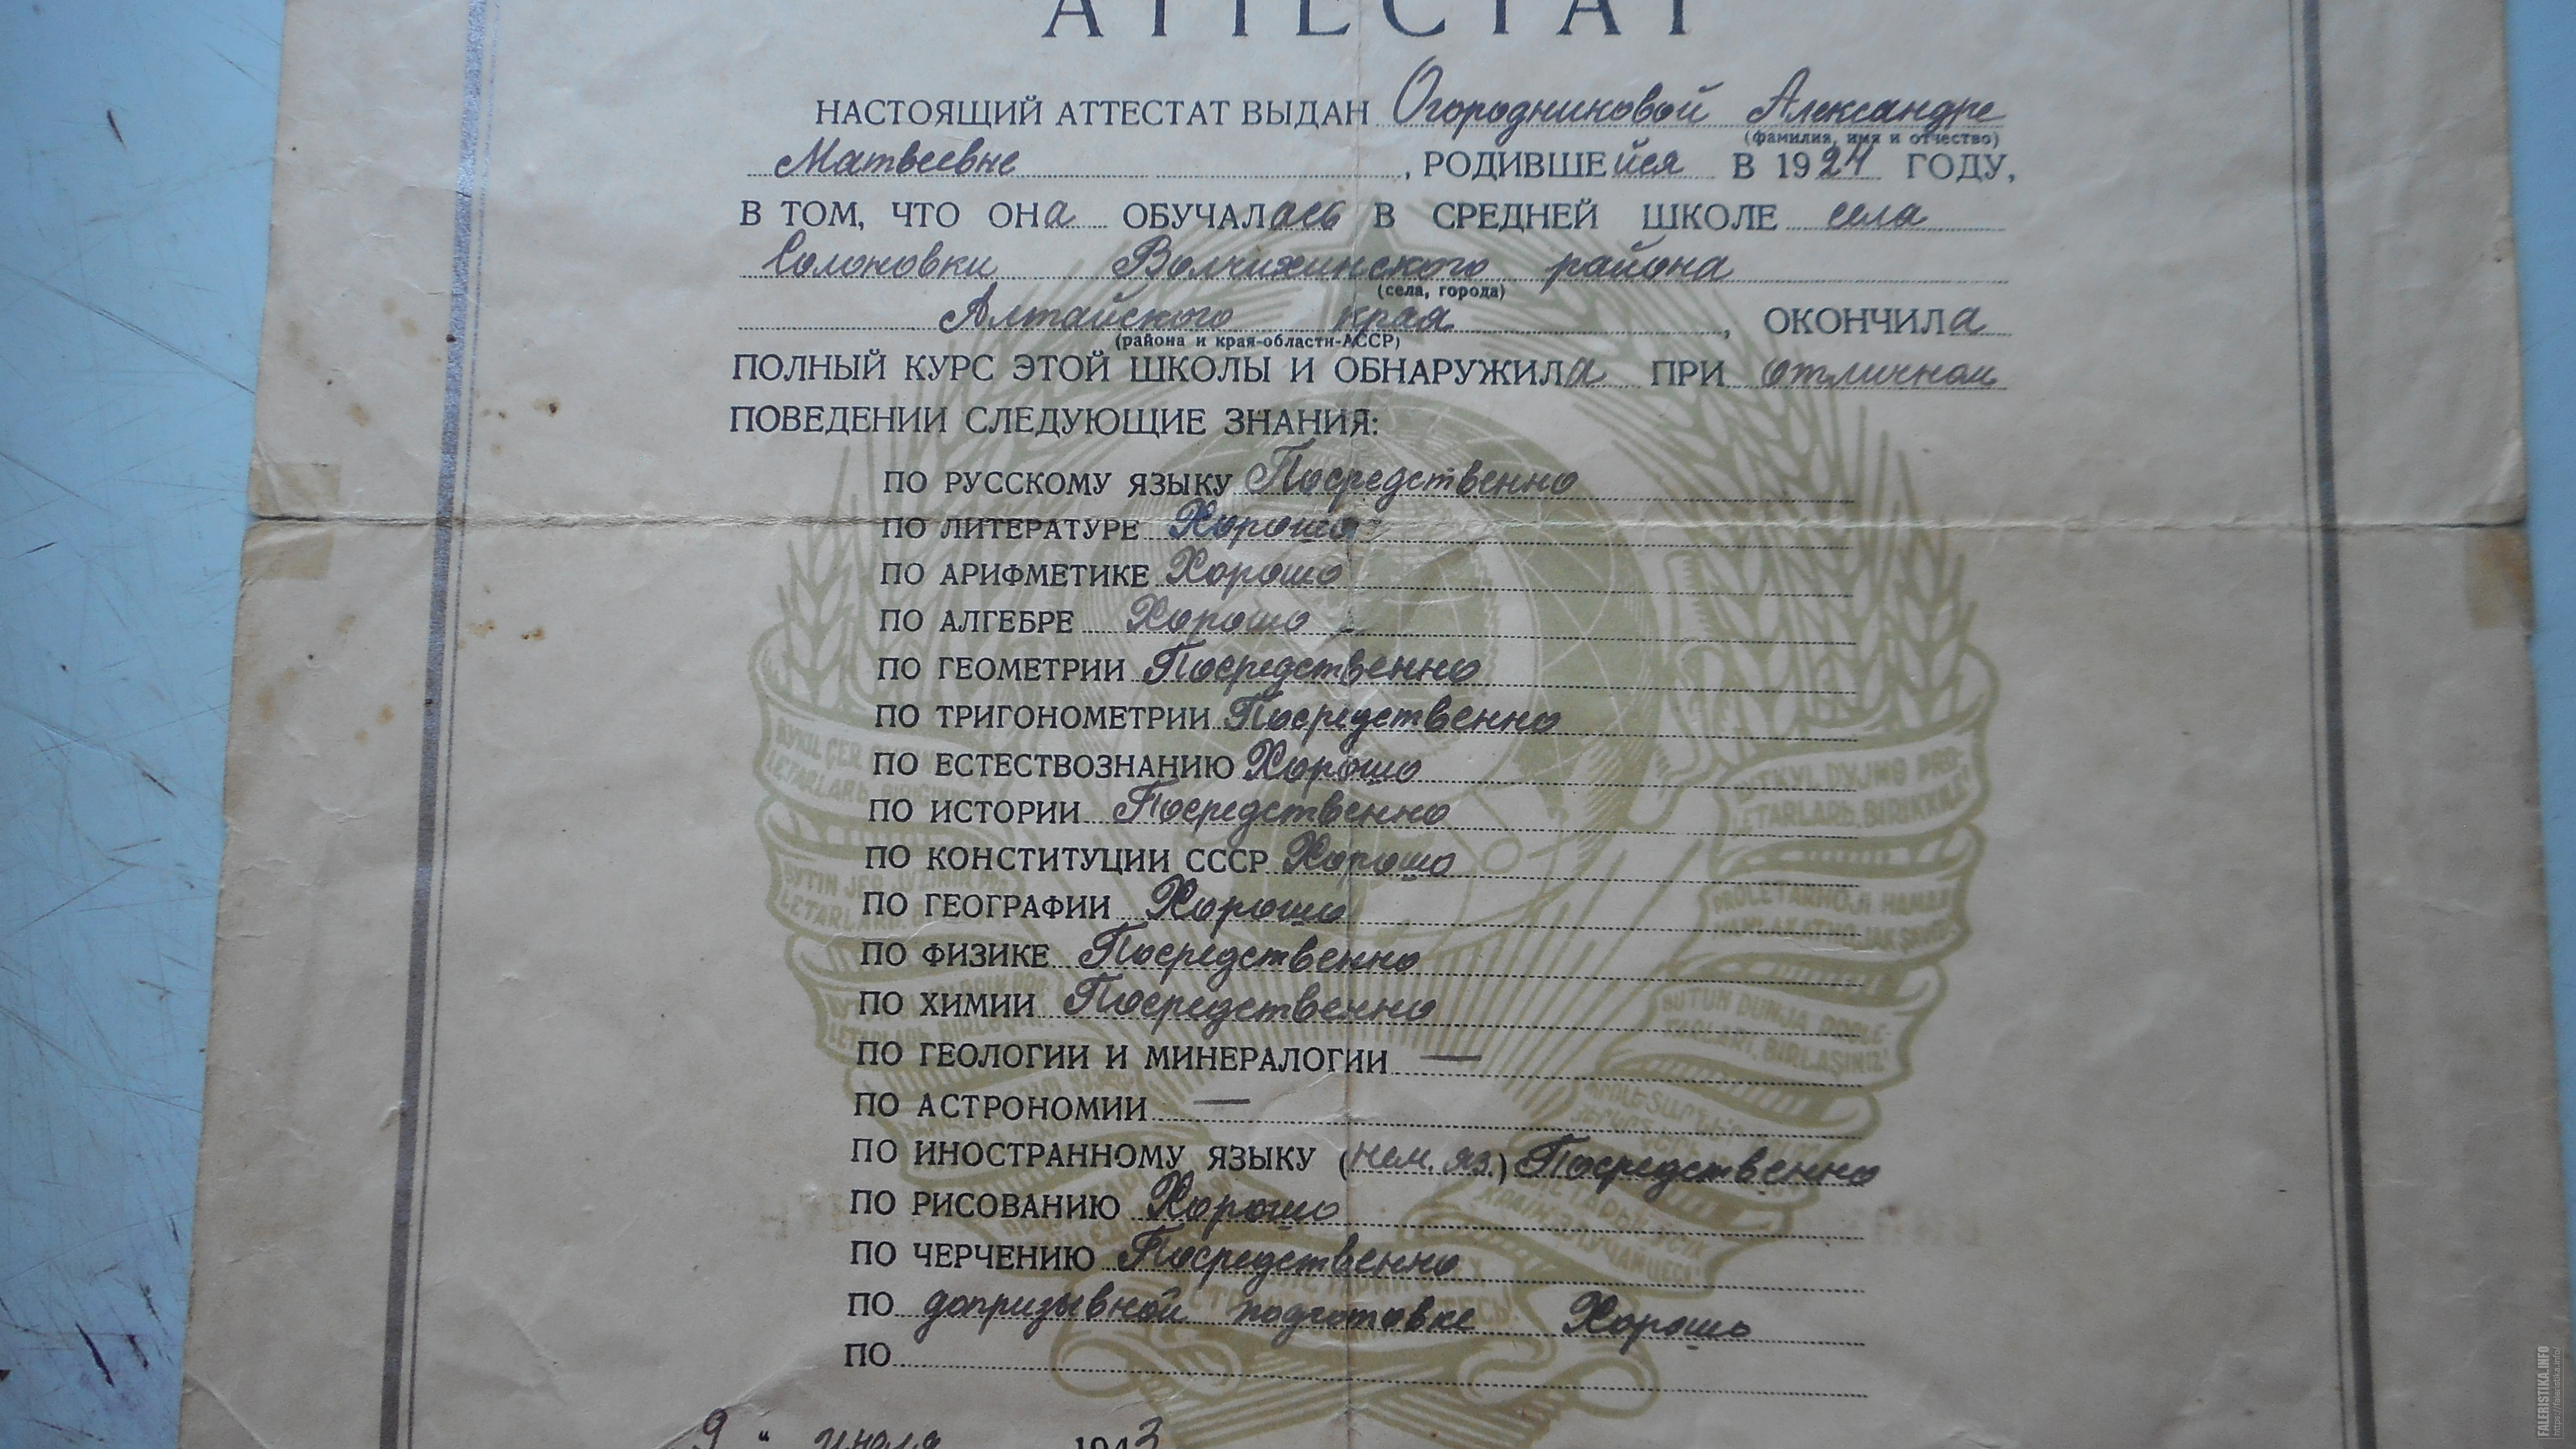 АТТЕСТАТ
НАСТОЯЩИЙ АТТЕСТАТ ВЫДАН Огородниковой Александре
(фамилия, имя и отчество)
Матвеевне, РОДИВШЕйся В 1924 ГОДУ,
В ТОМ, ЧТО ОНа ОБУЧАЛась В СРЕДНЕЙ ШКОЛЕ села
Солоновки Волчихинского района
(села, города)
Алтайского края, ОКОНЧИЛа
(района и края-области-АССР)
ПОЛНЫЙ КУРС ЭТОЙ ШКОЛЫ И ОБНАРУЖИЛа ПРИ отличном
ПОВЕДЕНИИ СЛЕДУЮЩИЕ ЗНАНИЯ:
ПО РУССКОМУ ЯЗЫКУ Посредственно
ПО ЛИТЕРАТУРЕ Хорошо
ПО АРИФМЕТИКЕ Хорошо
ПО АЛГЕБРЕ Хорошо
ПО ГЕОМЕТРИИ Посредственно
ПО ТРИГОНОМЕТРИИ Посредственно
ПО ЕСТЕСТВОЗНАНИЮ Хорошо
ПО ИСТОРИИ Посредственно
ПО КОНСТИТУЦИИ СССР Хорошо
ПО ГЕОГРАФИИ Хорошо
ПО ФИЗИКЕ Посредственно
ПО ХИМИИ Посредственно
ПО ГЕОЛОГИИ И МИНЕРАЛОГИИ —
ПО АСТРОНОМИИ —
ПО ИНОСТРАННОМУ ЯЗЫКУ (нем. яз.) Посредственно
ПО РИСОВАНИЮ Хорошо
ПО ЧЕРЧЕНИЮ Посредственно
ПО допризывной подготовке Хорошо
ПО
9 " июля 1943
FALERISTIKA.INFO
https://faleristika.info/